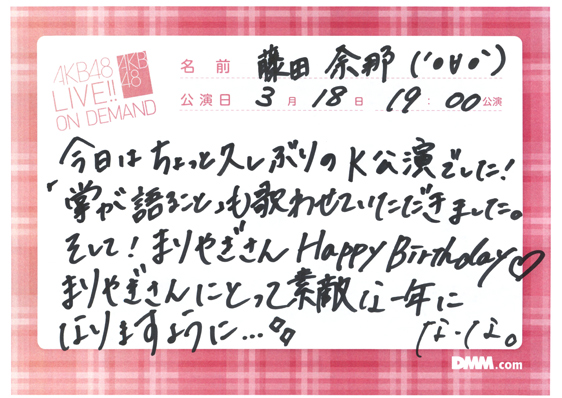 AKB48
LIVE!!
ON DEMAND
AKB
48
名前 藤田奈那 (´•∀•`)
公演日 3月18日 19:00公演
今日はちょっと久しぶりのK公演でした!
「掌が語ること」も歌わせていただきました。
そして!まりやぎさん Happy Birthday♡
まりやぎさんにとって素敵な一年に
なりますように...
なーな。
DMM.com